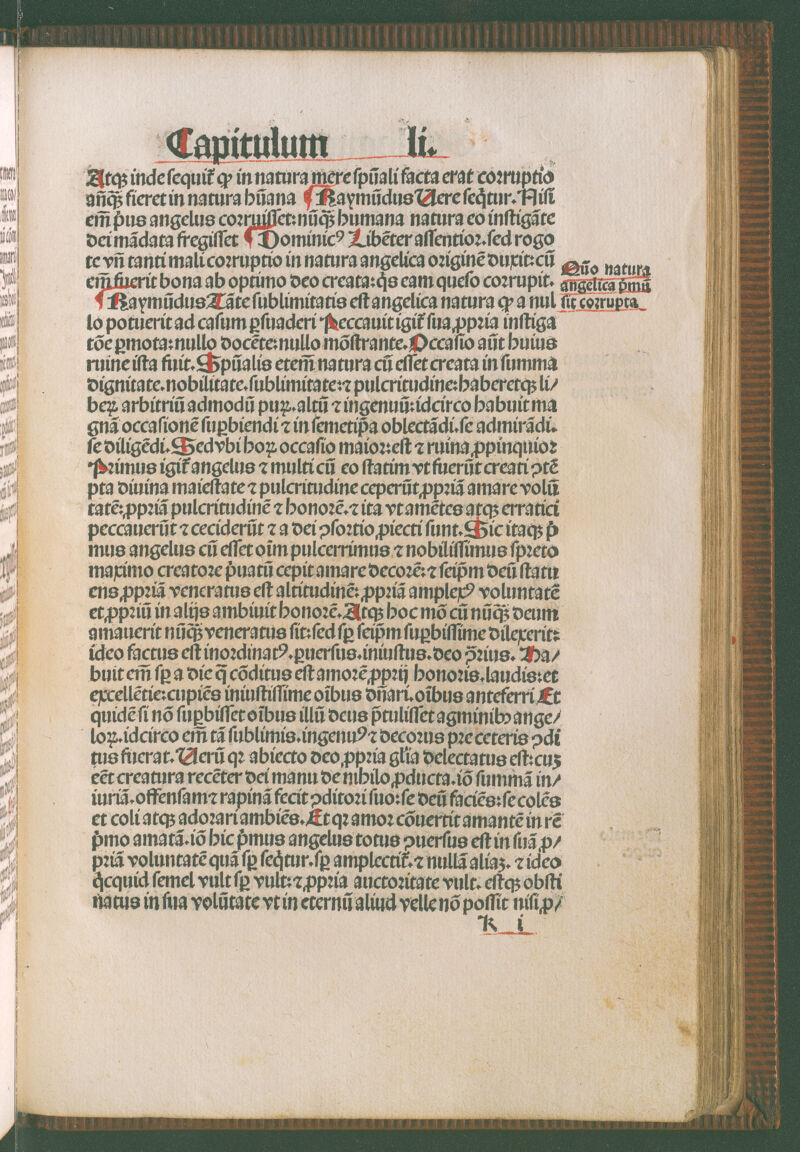 Capitulum li.
Atqꝫ inde sequit᷑ ꝙ in natura mere spūali facta erat corruptio
añqꝫ fieret in natura hūana ¶ Raymūdus Uere seq̄tur. Nisi
em̄ p̄us angelus corruisset: nūqꝫ humana natura eo instigāte
dei mādata fregisset ¶ Dominicꝰ Libēter assentior. sed rogo
te vn̄ tanti mali corruptio in natura angelica originē duxit: cū
em̄ fuerit bona ab optimo deo creata: q̄s eam queso corrupit.
Quō natura
angelica p̄mū
sit corrupta
¶ Raymūdus Tāte sublimitatis est angelica natura ꝙ a nul
lo potuerit ad casum ꝑsuaderi Peccauit igit᷑ sua ꝓpria instiga
tōe ꝑmota: nullo docēte: nullo mōstrante. Occasio aūt huius
ruine ista fuit. Spūalis etem̄ natura cū esset creata in summa
dignitate. nobilitate. sublimitate: ⁊ pulcritudine: haberetqꝫ li/
beꝝ arbitriū admodū puꝝ. altū ⁊ ingenuū: idcirco habuit ma
gnā occasionē suꝑbiendi ⁊ in semetip̄a oblectādi. se admirādi.
se diligēdi. Sed vbi hoꝝ occasio maior: est ⁊ ruina ꝓpinquior
Primus igit᷑ angelus ⁊ multi cū eo statim vt fuerūt creati ꝯtē
pta diuina maiestate ⁊ pulcritudine ceperūt ꝓpriā amare volū
tatē: ꝓpriā pulcritudinē ⁊ honorē. ⁊ ita vt amētes atqꝫ erratici
peccauerūt ⁊ ceciderūt ⁊ a dei ꝯsortio ꝓiecti sunt. Sic itaqꝫ p̄
mus angelus cū esset oīm pulcerrimus ⁊ nobilissimus spreto
maximo creatore p̄uatū cepit amare decorē: ⁊ seip̄m deū statu
ens ꝓpriā veneratus est altitudinē: ꝓpriā amplexꝰ voluntatē
et ꝓpriū in alijs ambiuit honorē. Atqꝫ hoc mō cū nūqꝫ deum
amauerit nūqꝫ veneratus sit: sed sꝑ seip̄m suꝑbissime dilexerit:
ideo factus est inordinatꝰ. ꝑuersus. iniustus. deo ꝯ̄rius. Ha/
buit em̄ sꝑ a die q̄ cōditus est amorē ꝓprij honoris. laudis: et
excellētie: cupiēs iniustissime oībus dn̄ari. oībus anteferri Et
quidē si nō suꝑbisset oībus illū deus p̄tulisset agminibꝰ ange/
loꝝ. idcirco em̄ tā sublimis. ingenuꝰ ⁊ decorus pre ceteris ꝯdi
tus fuerat. Uerū qꝛ abiecto deo ꝓpria gl̄ia delectatus est: cuꝫ
eēt creatura recēter dei manu de nihilo ꝓducta. iō summā in/
iuriā. offensam ⁊ rapinā fecit ꝯditori suo: se deū faciēs: se colēs
et coli atqꝫ adorari ambiēs. Et qꝛ amor cōuertit amantē in rē
p̄mo amatā. iō hic p̄mus angelus totus ꝯuersus est in suā ꝓ/
priā voluntatē quā sꝑ seq̄tur. sꝑ amplectit᷑. ⁊ nullā aliaꝫ. ⁊ ideo
q̇cquid semel vult sꝑ vult: ⁊ ꝓpria auctoritate vult. estqꝫ obsti
natus in sua volūtate vt in eternū aliud velle nō possit nisi ꝓ/
K i